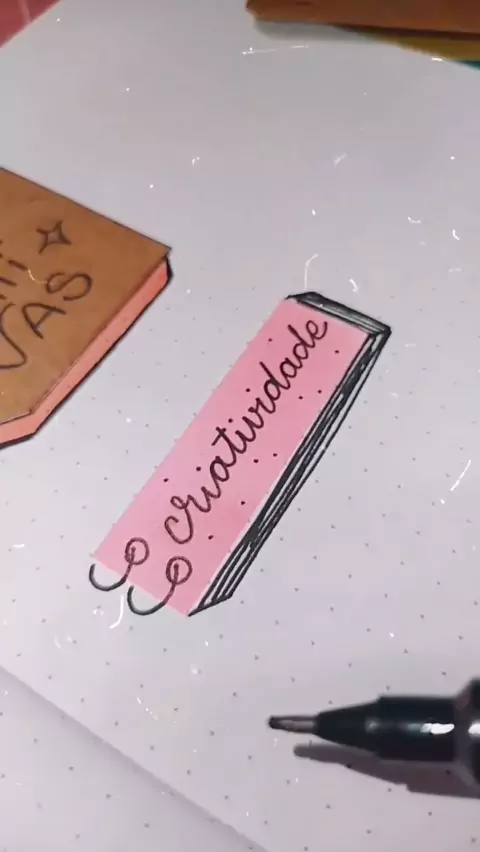 VAS
criatividade